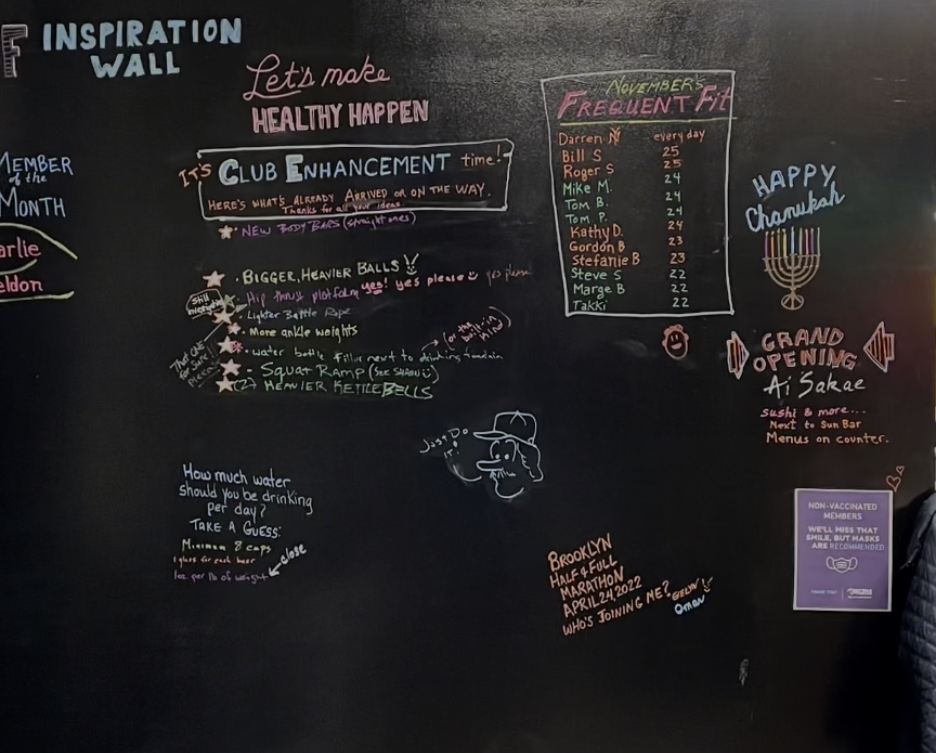 F INSPIRATION
WALL
Let's make
HEALTHY HAPPEN
MEMBER
of the
MONTH
arlie
eldon
IT'S CLUB ENHANCEMENT time!
HERE'S WHAT'S ALREADY ARRIVED OR ON THE WAY.
Thanks for all your ideas
NEW BODY BARS (straight ones)
BIGGER, HEAVIER BALLS!!
Hip thrust platform yes! yes please yes please
Still
Lighter Battle Rope
More ankle weights
water bottle filler next to drinking fountain
(or the built-in kind)
That one
for sure!!
please
Squat Ramp (SEE SHAUN)
(2) HEAVIER KETTLEBELLS
NOVEMBER'S
FREQUENT Fit
Darren N every day
Bill S 25
Roger S 25
Mike M. 24
Tom B. 24
Tom P. 24
Kathy D. 24
Gordon B 23
Stefanie B 23
Steve S 22
Marge B 22
Takki 22
HAPPY
Chanukah
GRAND
OPENING
Ai Sakae
Sushi & more...
Next to Sun Bar
Menus on counter.
Just Do
it!
How much water
should you be drinking
per day?
TAKE A GUESS:
Minimum 8 cups
1 glass for each beer
1oz per lb of weight
close
BROOKLYN
HALF & FULL
MARATHON
APRIL 24, 2022
WHO'S JOINING ME?
Omar
NON-VACCINATED
MEMBERS
WE'LL MISS THAT
SMILE, BUT MASKS
ARE RECOMMENDED